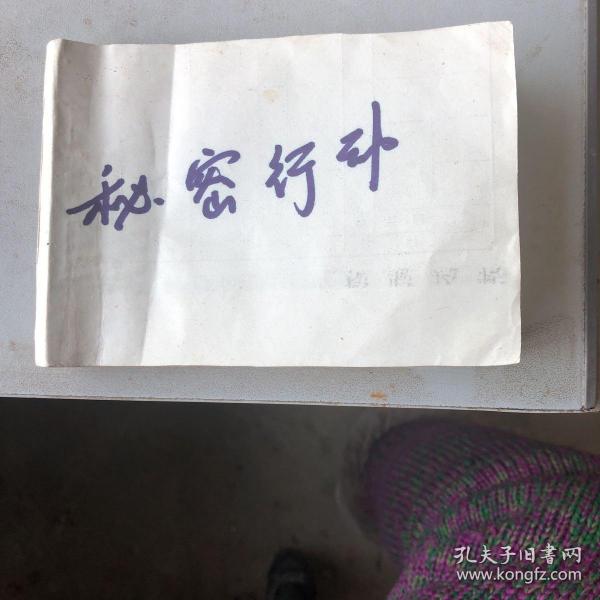 秘密行动
孔夫子旧書网
www.kongfz.com